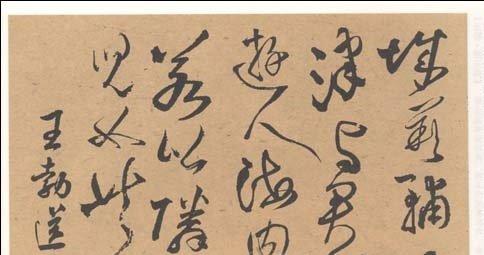 城闕輔
津与君
遊人海內
若比隣
兒女共
王勃送